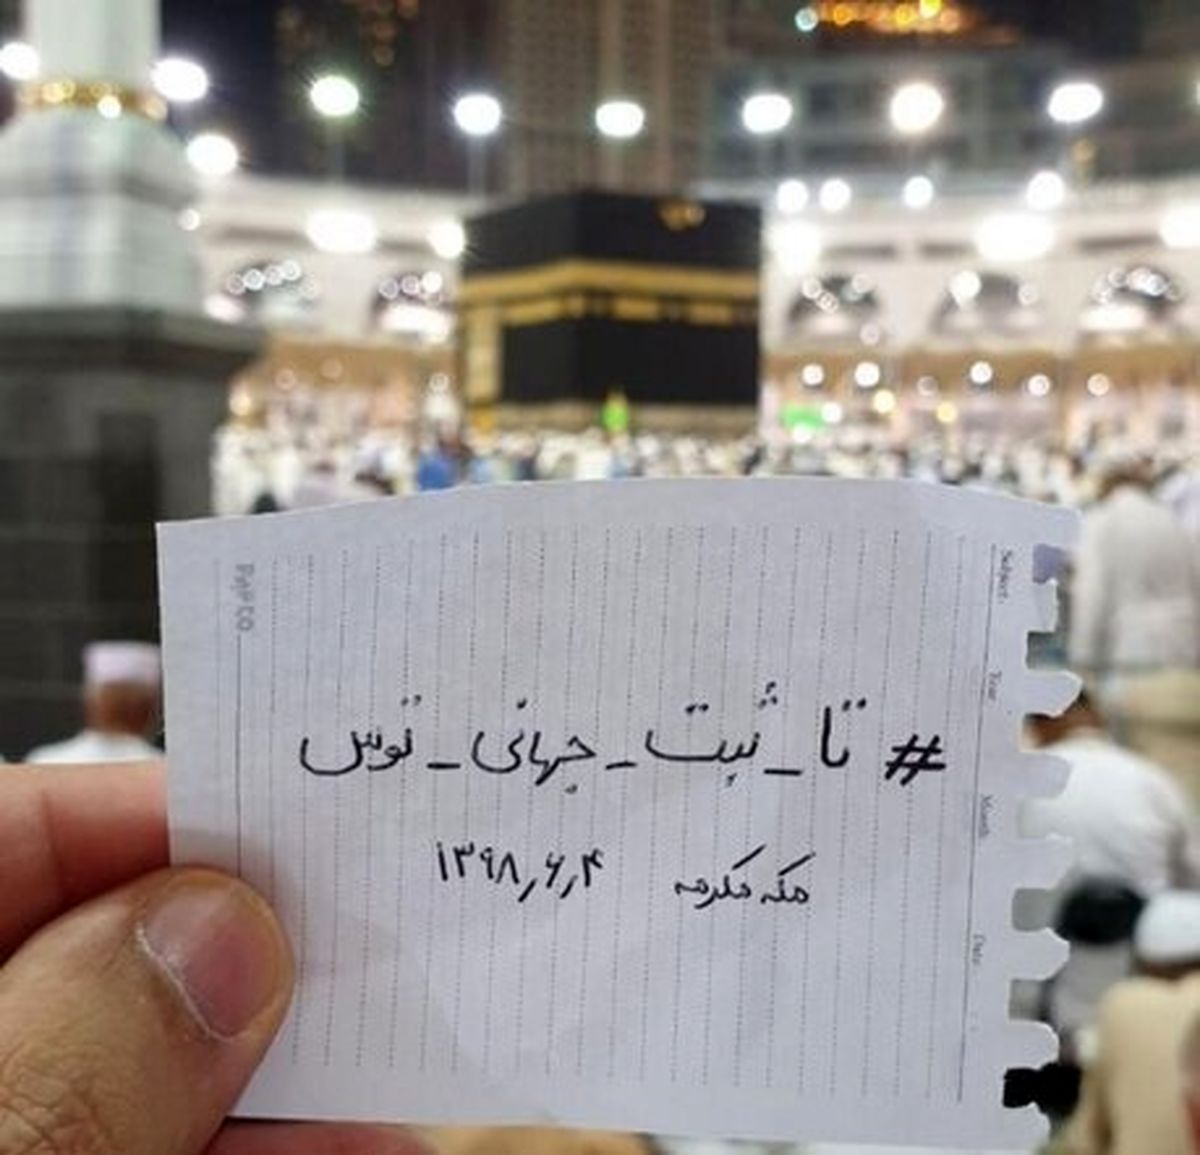 # تا_ثبت_جهانی_توس
مکه مکرمه ۱۳۹۸٫۶٫۴
PaPCO
Subject:
Year
Month
Date